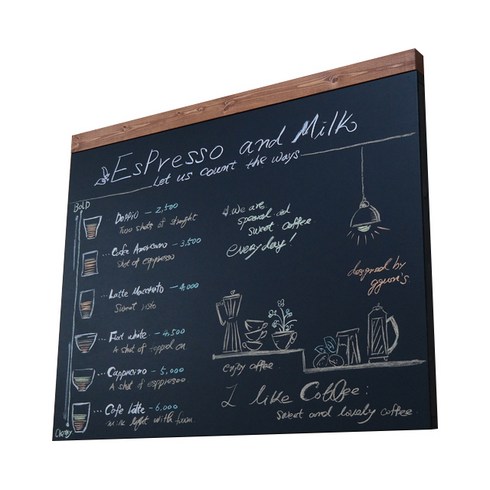 Espresso and Milk
Let us count the ways
BOLD
Doppio - 2,500
Two shots of straight
Cafe Americano - 3,500
Shot of espresso
Latte Macchiato - 4,000
Flat white - 4,500
A shot of
Cappuccino - 5,000
A shot of espresso
Cafe Latte - 6,000
milk light with foam
we are
sweet coffee
everyday!
designed by
enjoy coffee
I like Coffee:
sweet and lovely coffee